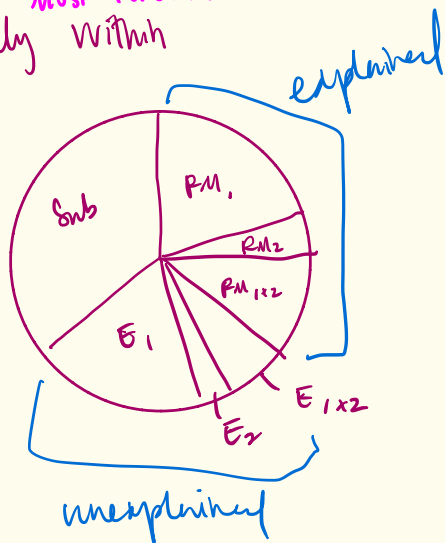 ly Within
explained
Sub
RM1
RM2
RM1x2
E1
E1x2
E2
unexplained